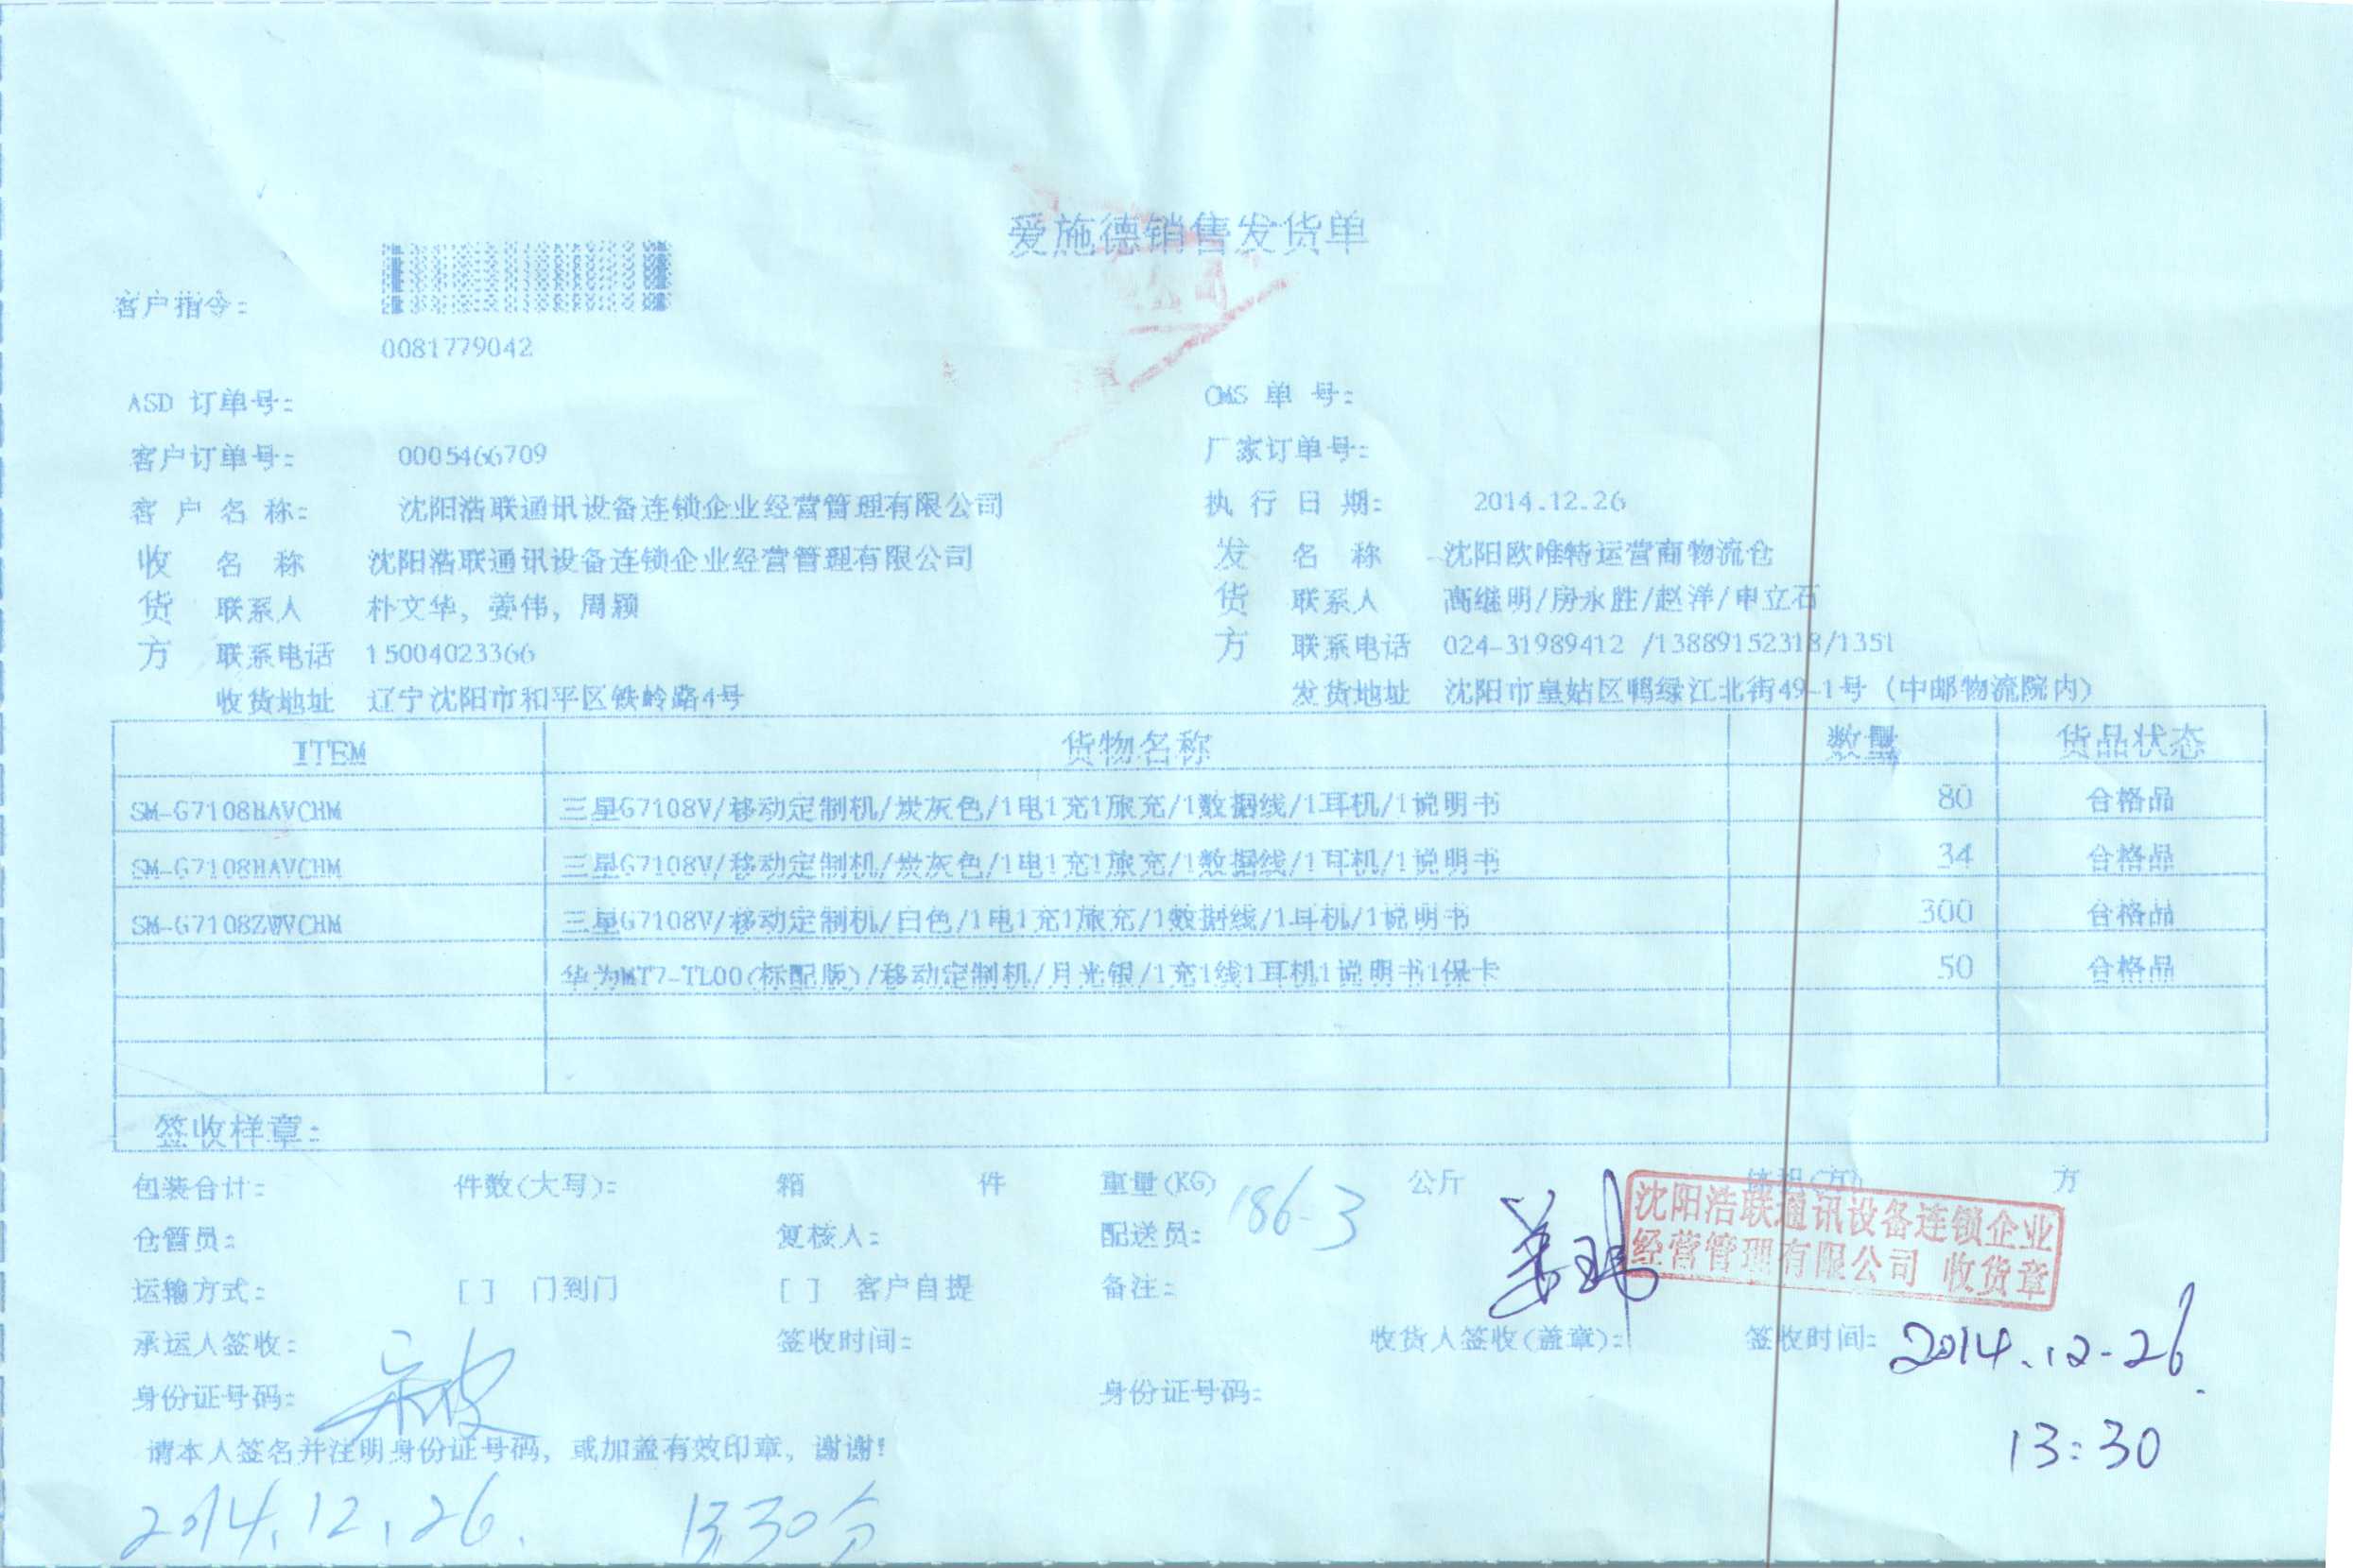 爱施德销售发货单
客户指令:
0081779042
ASD 订单号: OMS 单 号:
客户订单号: 0005466709 厂家订单号:
客 户 名 称: 沈阳浩联通讯设备连锁企业经营管理有限公司 执 行 日 期: 2014.12.26
收 名 称 沈阳浩联通讯设备连锁企业经营管理有限公司 发 名 称 沈阳欧唯特运营商物流仓
货 联系人 朴文华, 姜伟, 周颖 货 联系人 高继明/房永胜/赵洋/申立石
方 联系电话 15004023366 方 联系电话 024-31989412 /13889152318/1351
收货地址 辽宁沈阳市和平区铁岭路4号 发货地址 沈阳市皇姑区鸭绿江北街49-1号 (中邮物流院内)
ITEM 货物名称 数量 货品状态
SM-G7108HAVCHM 三星G7108V/移动定制机/炭灰色/1电1充1旅充/1数据线/1耳机/1说明书 80 合格品
SM-G7108HAVCHM 三星G7108V/移动定制机/炭灰色/1电1充1旅充/1数据线/1耳机/1说明书 34 合格品
SM-G7108ZWVCHM 三星G7108V/移动定制机/白色/1电1充1旅充/1数据线/1耳机/1说明书 300 合格品
华为MT7-TL00(标配版)/移动定制机/月光银/1充1线1耳机1说明书1保卡 50 合格品
签收样章:
包装合计: 件数(大写): 箱 件 重量(KG) 186-3 公斤 体积(方) 方
沈阳浩联通讯设备连锁企业
经营管理有限公司 收货章
仓管员: 复核人: 配送员:
运输方式: [ ] 门到门 [ ] 客户自提 备注:
承运人签收: 签收时间: 收货人签收(盖章): 签收时间: 2014.12-26.
身份证号码: 身份证号码: 13:30
请本人签名并注明身份证号码, 或加盖有效印章, 谢谢!
2014.12.26. 13:30分